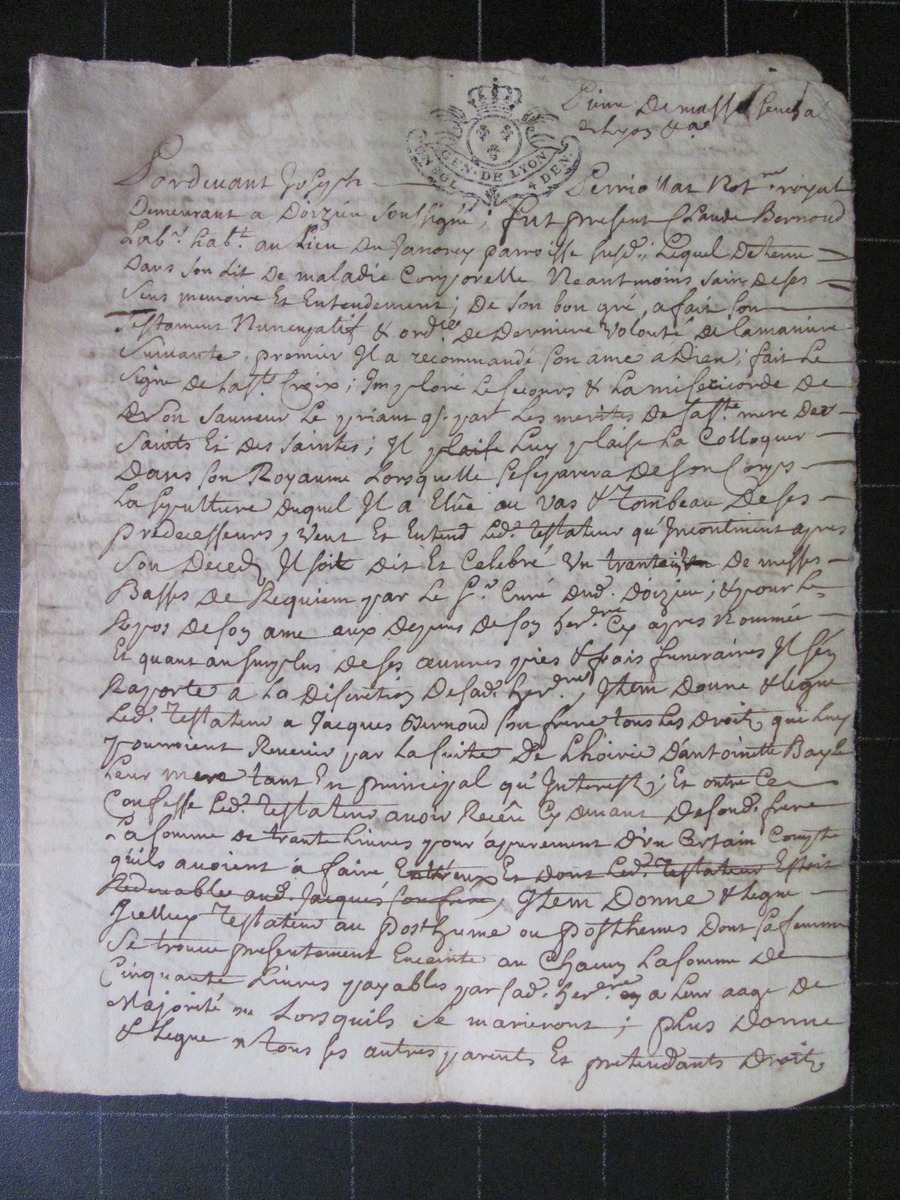 GEN · DE LYON
UN SOL 4 DEN
Pardevant Joseph Perrio nat Not.re royal
Demeurant a Doizieu soussigné ; fut present Claude Bernoud
Lab.r hab.t au Lieu Du Janorey parroisse susd. ; Lequel Detenu
Dans son Lit De maladie Corporelle Neantmoins sain De ses
Sens memoire Et Entendement ; De son bon gré, a fait son
Testament Nuncupatif & ord.ce De Derniere Volonté De la maniere
Suivante, premier Il a recommandé son ame a Dieu ; fait Le
Signe De la s.te Croix ; Imploré Le secours & La misericorde De
De son Sauveur Le priant q. par Les merites De sa s.te mere Des
Saints Et Des Saintes ; Il plaise Luy plaise La Colloquer
Dans son Royaume Lorsquelle se separera De son Corps
La sepulture Duquel Il a Elûe au Vas & Tombeau De ses
predecesseurs, Veut Et Entend Led. Testateur qu'Incontinent apres
Son Deced Il soit Dit Et Celebré Un trantain De messes
Basses De Requiem par Le S.r Curé Dud. Doizieu ; & pour Le
Repos De son ame aux Depens De son her.re Cy apres Nommée
Et quant au surplus De ses œuvres pies & frais funeraires Il s'en
Raporte a La Discretion De sad. her.re, Item Donne & legue
Led. Testateur a Jacques Bernoud son frere tous Les Droits qui Luy
pourroient Revenir par La suite De L'hoirie D'antoinette Bayle
Leur mere tant En principal qu'Interest ; Et outre Ce
Confesse Led. Testateur avoir Recêu Cy Devant De son d. frere
La somme de trante Livres pour apurement D'un Certain Compte
qu'ils avoient à faire Entr'eux Et Dont Led. Testateur Estoit
Redevable aud. Jacques son frere, Item Donne & Legue
Icelluy Testateur au posthume ou posthemes Dont sa femme
Se trouve presentement Enceinte au Chacun La somme De
Cinquante Livres payables par sad. her.re a Leur aage De
Majorité ou Lorsquils se marieront ; plus Donne
& Legue a tous ses autres parents Et pretendants Droits